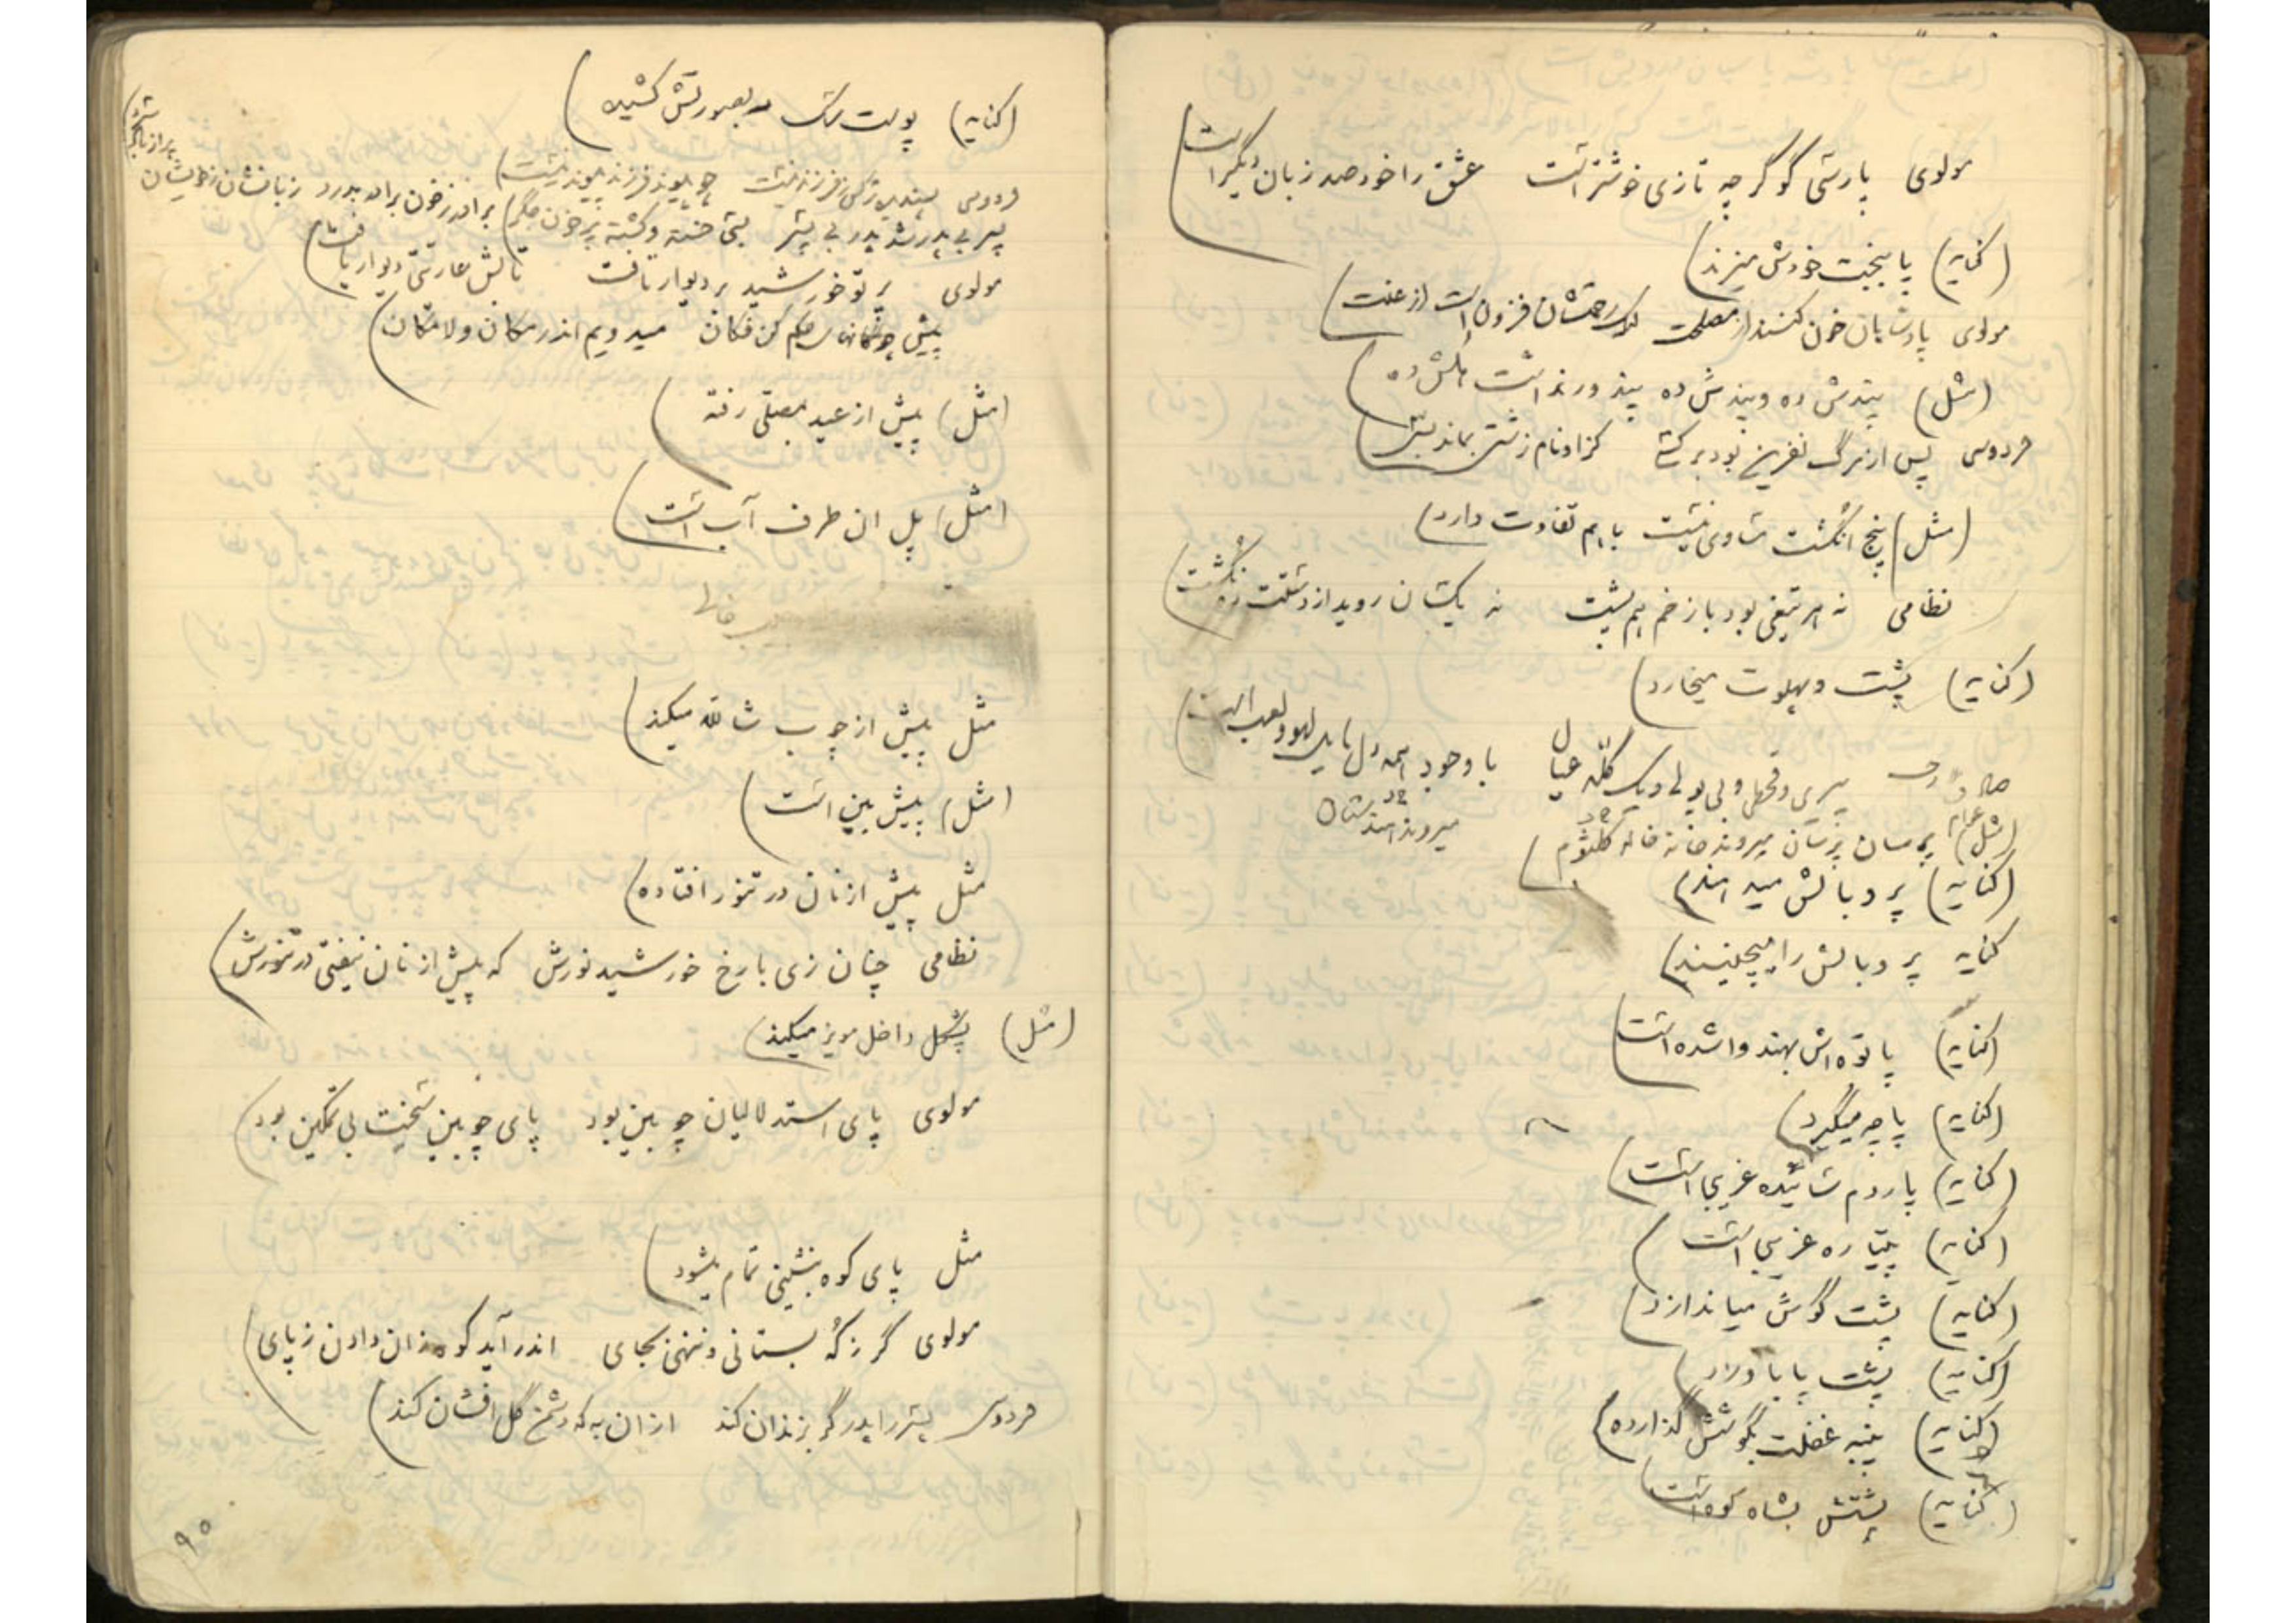 مولوی پارسی گو گرچه تازی خوشتر است عشق را خود صد زبان دیگر است)
(کنایه) پا ببخت خودش میزند)
مولوی پادشاهان خون کنند از مصلحت لیک رحمتشان فزون است از عنت)
(مثل) پندش ده و پندش ده پند ور نداست بندش ده)
فردوسی پس از مرگ نفرین بود بر کسی کزاو نام زشتی بماند بسی)
(مثل) پنج انگشت مساوی نیست باهم تفاوت دارد)
نظامی نه هر تیغی بود با زخم هم پشت نه یکسان روید از دستت ده انگشت)
(کنایه) پشت و پهلوت میخارد)
پیری و قحطی و بی پولی و یک گله عیال با وجود همه دل مایل لهو و لعب است)
(مثل عوام) پرسان پرسان میروند خانه خاله کلثوم)
میروند هندستان
(کنایه) پر و بالش میدهند)
کنایه پر و بالش را میچینند)
(کنایه) پاتوه اش بهند وا شده است)
(کنایه) پاچه میگیرد)
(کنایه) پاردم سائیده غریبی است)
(کنایه) پتیاره غریبی است)
(کنایه) پشت گوش میاندازد)
(کنایه) پشت پا باو زد)
(کنایه) پنبه غفلت بگوشش گذارده)
(کنایه) پشتش بشاه کوه است)
(کنایه) پوست سگ بصورتش کشیده)
فردوسی پسندیده تر کس ز فرزند نیست چو پیوند فرزند پیوند نیست)
پسر بی پدر شد پدر بی پسر بتی خسته و کشته پر خون جگر)
مولوی پرتو خورشید بر دیوار تافت تابش عاریتی دیوار یافت)
پیش چوگانهای حکم کن فکان میدویم اندر مکان و لامکان)
(مثل) پیش از عید بمصلی رفته)
(مثل) پل ان طرف آب است)
مثل پیش از چوب شالله میکند)
(مثل) پیش بین است)
مثل پیش از نان در تنور افتاده)
نظامی چنان زی با رخ خورشید نورش که پیش از نان نیفتی در تنورش)
(مثل) پشکل داخل مویز میکند)
مولوی پای استدلالیان چوبین بود پای چوبین سخت بی تمکین بود)
مثل پای کوه بنشینی تمام میشود)
مولوی گر ز که بستانی و ننهی بجای اندر آید کوه زان دادن ز پای)
فردوسی پسر را پدر گر بزندان کند از ان به که دشمن گل افشان کند)
۹۰